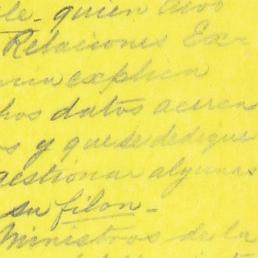 le. quien
Relaciones Ex
explica
hos datos acerca
s y que se dedique
gestionar algunas
su filon.
Ministros de la